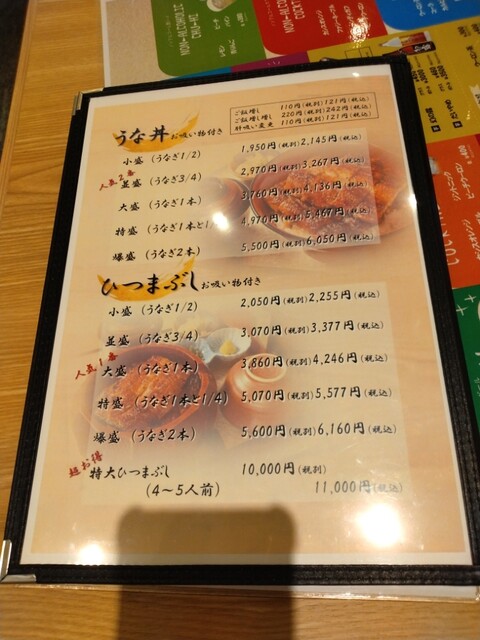 NON-ALCOHOLIC
CHU-HI
NON-ALCOHOLIC
うな丼 お吸い物付き
ご飯増し 110円(税別)121円(税込)
ご飯増し増し 220円(税別)242円(税込)
肝吸い変更 110円(税別)121円(税込)
小盛 (うなぎ1/2) 1,950円(税別)2,145円(税込)
人気2番
並盛 (うなぎ3/4) 2,970円(税別)3,267円(税込)
大盛 (うなぎ1本) 3,760円(税別)4,136円(税込)
特盛 (うなぎ1本と1/4) 4,970円(税別)5,467円(税込)
爆盛 (うなぎ2本) 5,500円(税別)6,050円(税込)
ひつまぶし お吸い物付き
小盛 (うなぎ1/2) 2,050円(税別)2,255円(税込)
並盛 (うなぎ3/4) 3,070円(税別)3,377円(税込)
人気1番
大盛 (うなぎ1本) 3,860円(税別)4,246円(税込)
特盛 (うなぎ1本と1/4) 5,070円(税別)5,577円(税込)
爆盛 (うなぎ2本) 5,600円(税別)6,160円(税込)
超お得
特大ひつまぶし 10,000円(税別)
(4〜5人前) 11,000円(税込)